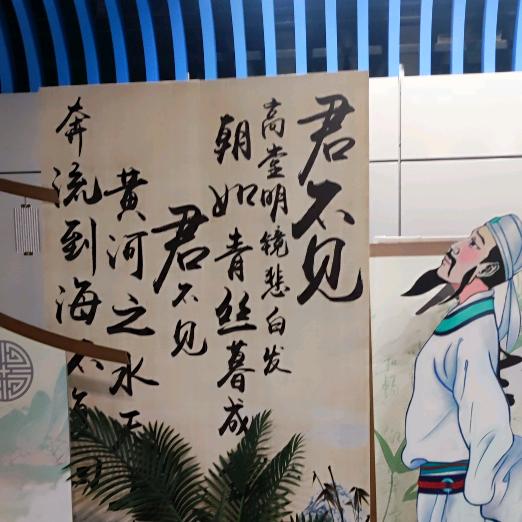 君不见
高堂明镜悲白发
朝如青丝暮成
君不见
黄河之水天
奔流到海不复回